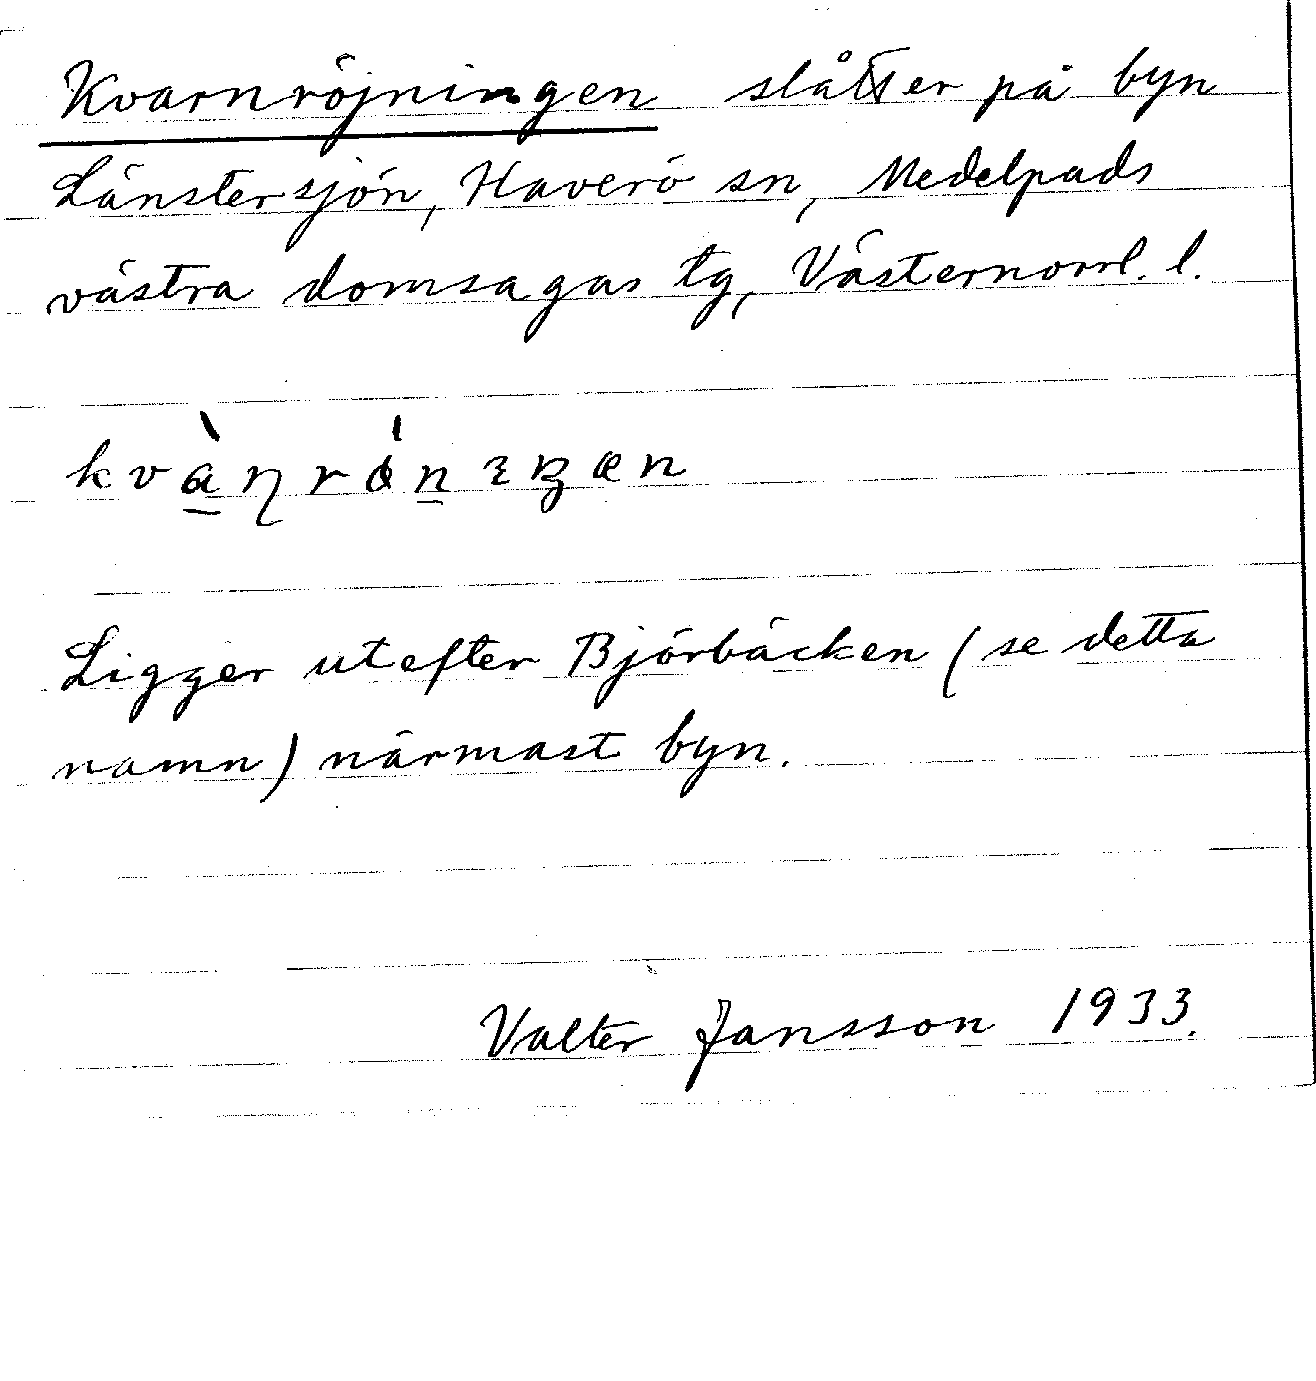 Kvarnröjningen slåtter på byn
Länstersjön, Haverö sn, Medelpads
västra domsagas tg, Västernorrl. l.
kvàɳrǿnɪŋæn
Ligger utefter Björbäcken (se detta
namn) närmast byn.
Valter Jansson 1933.